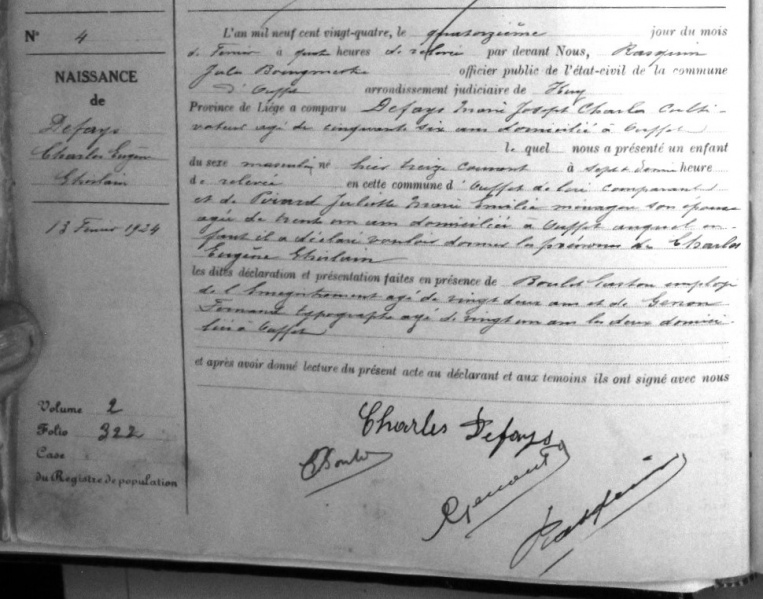 N° 4
NAISSANCE
de
Defays
Charles Eugène
Ghislain
13 Février 1924
Volume 2
Folio 322
Case
du Registre de population
L'an mil neuf cent vingt-quatre, le quatorzième jour du mois
de Février à quatre heures de relevée par devant Nous, Rasquin
Jules officier public de l'état-civil de la commune
d'Ouffet arrondissement judiciaire de Huy
Province de Liège a comparu Defays Marie Joseph Charles Culti-
vateur agé de cinquante six ans domicilié à Ouffet
le quel nous a présenté un enfant
du sexe masculin né hier treize courant à sept & demi heure
de relevée en cette commune d'Ouffet de lui comparant
et de Pirard Juliette Marie Emilie ménagère son épouse
agée de trente un ans domiciliée à Ouffet auquel en-
fant il a déclaré vouloir donner les prénoms de Charles
Eugène Ghislain
les dites déclaration et présentation faites en présence de Boulet Gaston employé
de l'Enregistrement agé de vingt deux ans et de Genon
Fernand typographe agé de vingt un ans les deux domici-
liés à Ouffet
et après avoir donné lecture du présent acte au déclarant et aux temoins ils ont signé avec nous
Charles Defays
GBoulet
Rasquin